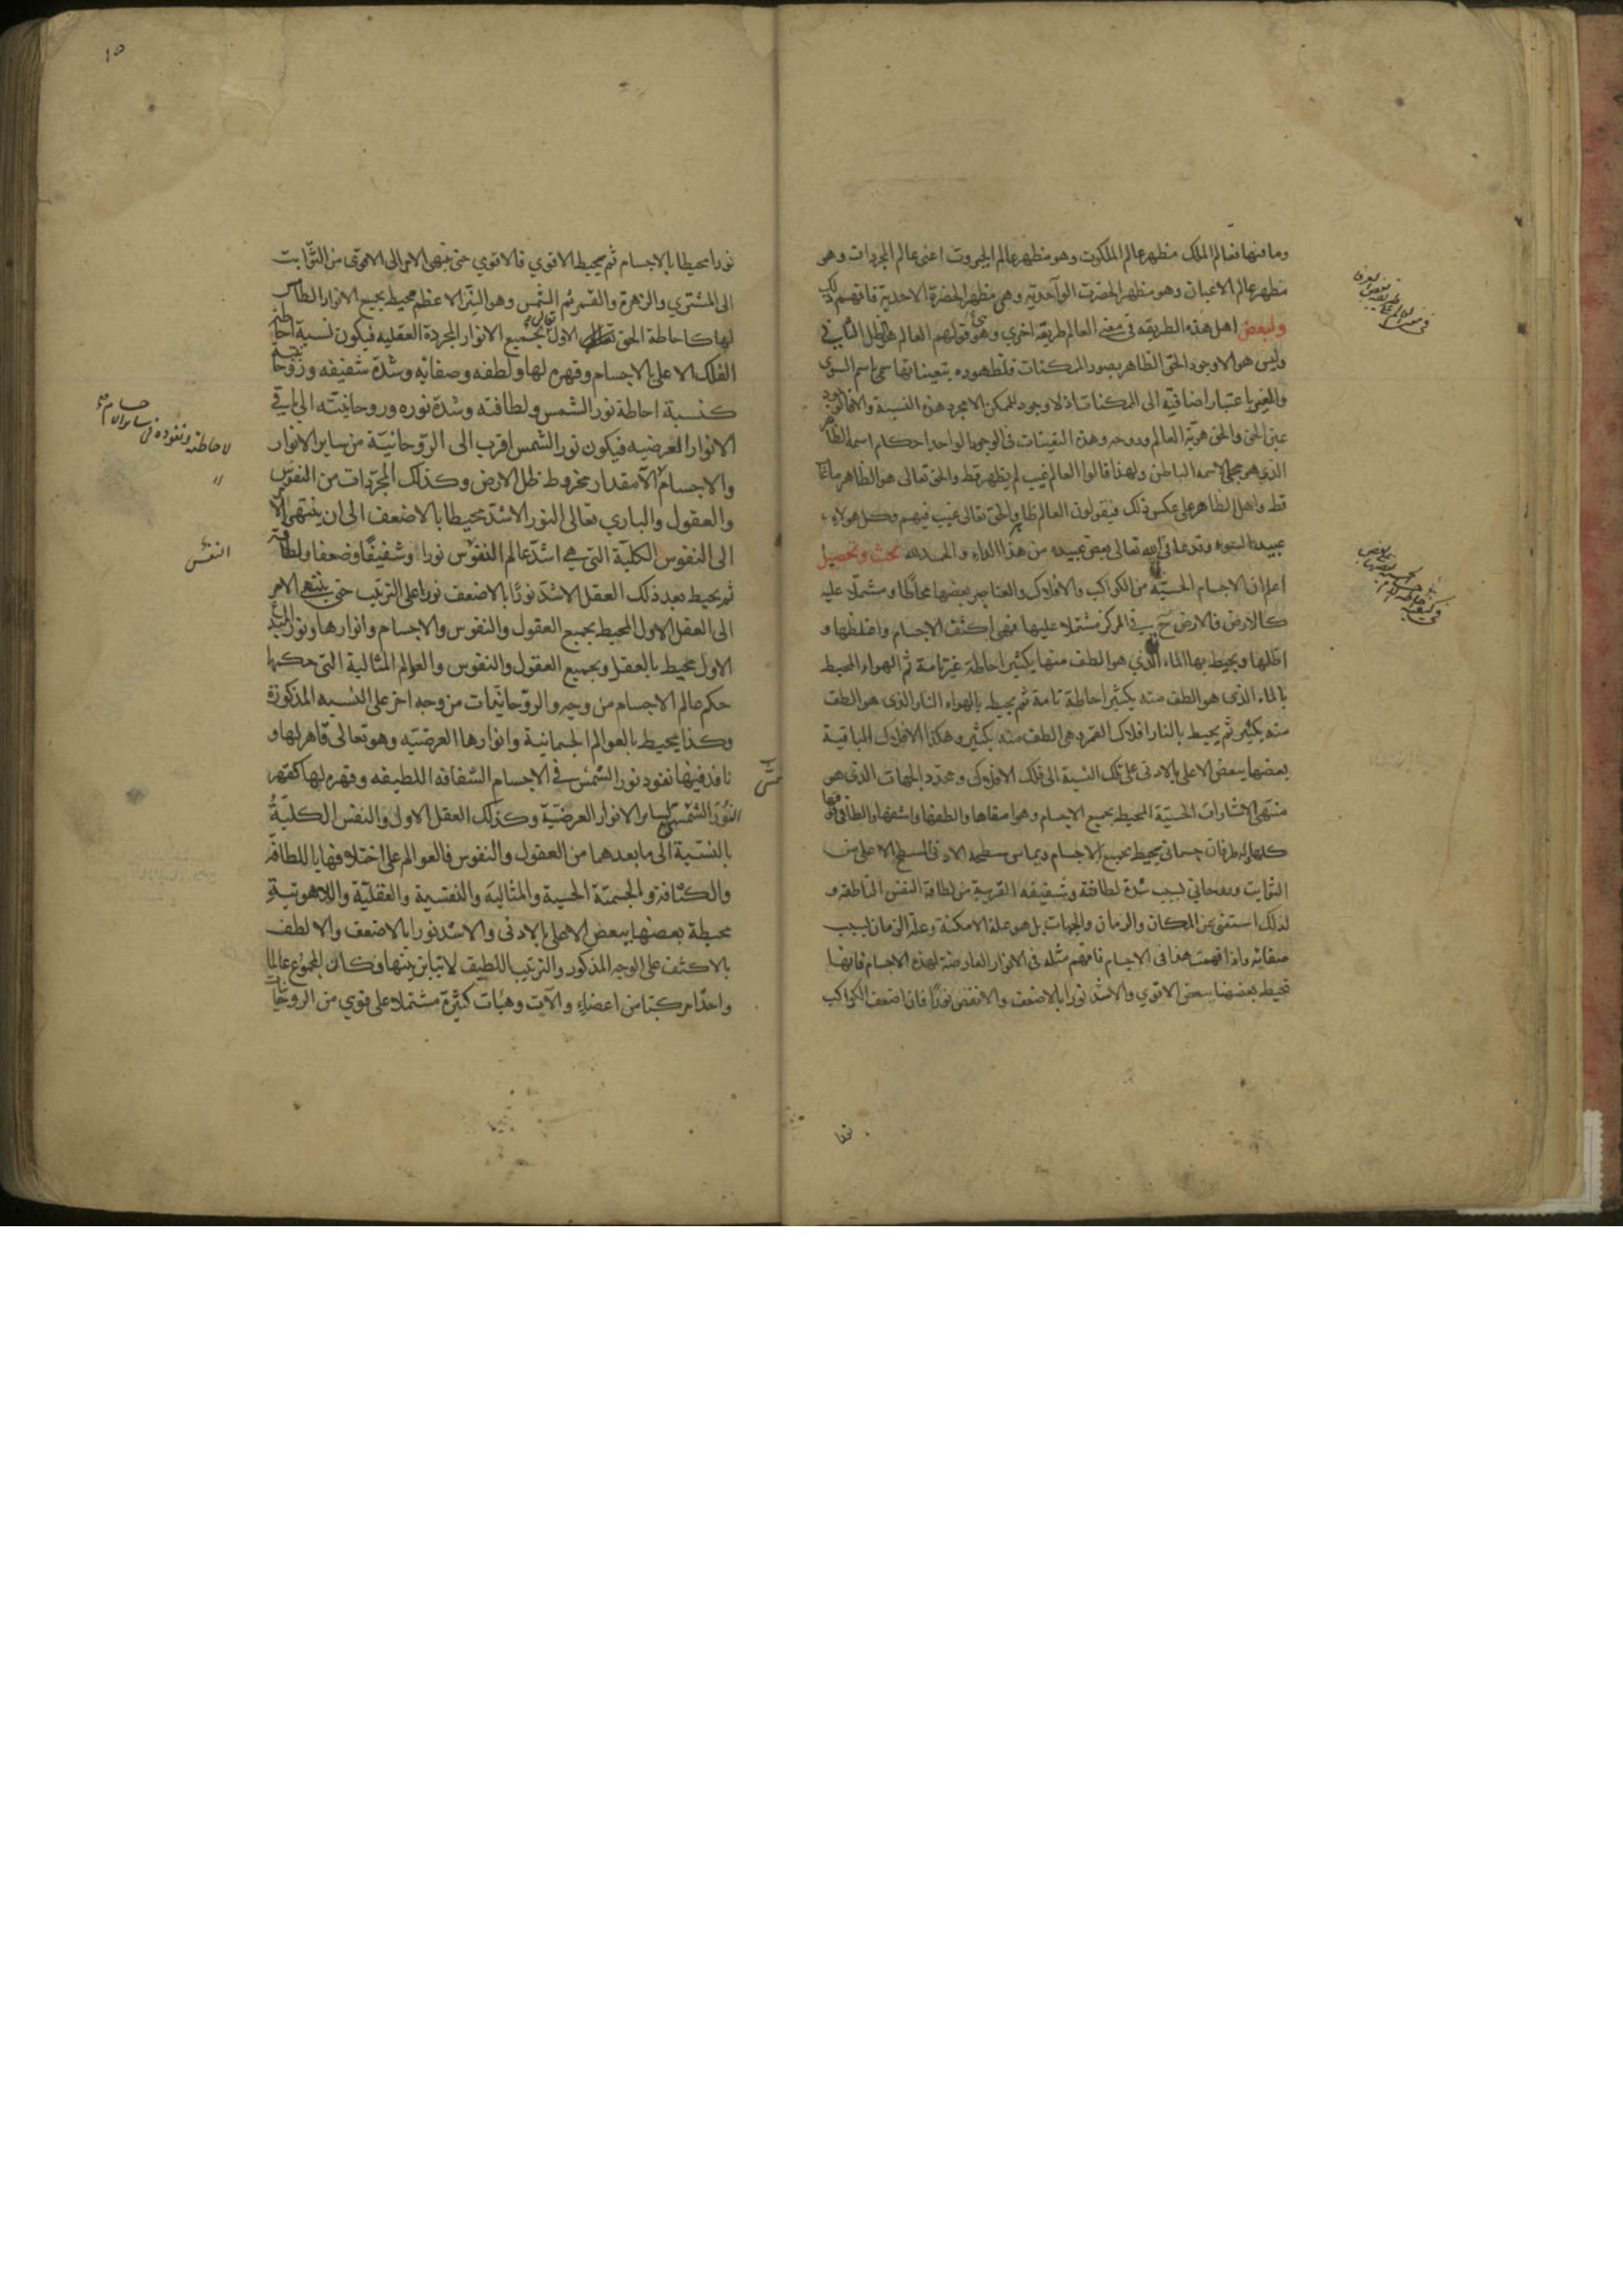 وما فيها فعالم الملك مظهر عالم الملكوت وهو مظهر عالم الجبروت اعنى عالم المجردات وهو
مظهر عالم الاعيان وهو مظهر الحضرت الواحدية وهى مظهر الحضرة الاحدية فافهم ذلك
ولبعض اهل هذه الطريقه فى معنى العالم طريقه اخري وهو قولهم العالم هو الظل الثاني
وليس هو الا وجود الحق الظاهر بصور الممكنات فلظهوره بتعيناتها سمى باسم السوى
والغير باعتبار اضافته الى الممكنات اذ لا وجود للممكن الا بمجرد هذه النسبة والا فالوجود
عين الحق والحق هوية العالم وروحه وهذه التعينات فى الوجود الواحد احكام اسمه الظاهر
الذي هو مجلى لاسمه الباطن ولهذا قالوا العالم غيب لم يظهر قط والحق تعالى هو الظاهر ما غاب
قط واهل الظاهر على عكس ذلك فيقولون العالم ظاهر والحق تعالى غيب فيهم وكل هولاء
عبيد السوء وقد عافى الله تعالى بعض عبيده من هذا الداء والحمد لله بحث وتحصيل
اعلم ان الاجسام الحسية من الكواكب والافلاك والعناصر بعضها محاطا ومشتملا عليه
كالارض فالارض فى المركز مشتملا عليها فهى اكثف الاجسام واغلظها و
اظلها ويحيط بها الماء الذي هو الطف منها بكثير احاطة غير تامة ثم الهواء المحيط
بالماء الذى هو الطف منه بكثير احاطة تامة ثم يحيط بالهواء النار الذى هو الطف
منه بكثير ثم يحيط بالنار افلاك القمر وهى الطف منه بكثير وهكذا الافلاك الباقية
بعضها ببعض الاعلى بالادنى على تلك النسبة الى فلك الافلاك ومحدد الجهات الذى هو
منتهى الاشارات الحسية المحيط بجميع الاجسام وهو اصفاها والطفها واشفها
كلها وله طرفان جسمانى يحيط بجميع الاجسام ويماس سطحه الادنى السطح الاعلى من
الثوابت وروحاني لسبب شدة لطافته وشفيفه القريبة من لطافة النفس الناطقة و
لذلك استغنى عن المكان والزمان والجهات بل هو علة الامكنة وعلة الزمان لسبب
صفائه واذا فهمت هذا فى الاجسام فافهم مثله فى الانوار العارضة لهذه الاجسام فانها
تحيط بعضها ببعض الاقوي والاشد نورا بالاضعف والانقص نورًا فان اضعف الكواكب
١٥
نورا محيطا بالاجسام ثم يحيط الاقوي فالاقوي حتى ينتهى الامر الى الاقوى من الثوابت
الى المشتري والزهرة والقمر ثم الشمس وهو النير الاعظم محيط بجميع الانوار
لها كاحاطة الحق تعالى الاول بجميع الانوار المجردة العقليه فيكون نسبة احاطة
الفلك الاعلى بالاجسام وقهره لها ولطفه وصفائه وشدة شفيفه وروحانيته
كنسبة احاطة نور الشمس ولطافته وشدة نوره وروحانيته الى باقي
الانوار العرضيه فيكون نور الشمس اقرب الى الروحانيّة من ساير الانوار
والاجسام الا مقدار مخروط ظل الارض وكذلك المجردات من النفوس
والعقول والباري تعالى النور الاشد محيطا بالاضعف الى ان ينتهى الامر
الى النفوس الكلية التى هي اشد عالم النفوس نورا وشفيفًا وضعفا ولطافة
ثم يحيط بعد ذلك العقل الاشد نورًا بالاضعف نورا على الترتيب حتى ينتهى الامر
الى العقل الاول المحيط بجميع العقول والنفوس والاجسام وانوارها ونور المبدء
الاول محيط بالعقل وبجميع العقول والنفوس والعوالم المثالية التى حكمها
حكم عالم الاجسام من وجه والروحانيات من وجه اخر على النسبه المذكورة
وكذا يحيط بالعوالم الجسمانية وانوارها العرضيه وهو تعالى قاهر لها و
نافذ فيها نفود نور الشمس فى الاجسام الشفافه اللطيفه وقهره لها كقهر
النور الشمسى لساير الانوار العرضيّة وكذلك العقل الاول والنفس الكلية
بالنسبة الى ما بعدهما من العقول والنفوس فالعوالم على اختلافها باللطافة
والكثافة والجسمية الحسية والمثالية والنفسية والعقليّة واللاهوتية
محيطة بعضها ببعض الاعلى بالادنى والاشد نورا بالاضعف والالطف
بالاكثف على الوجه المذكور والترتيب اللطيف لا تباين بينها وكان المجموع عالما
واحدا مركبا من اعضاء والآت وهيأت كثيرة مشتملا على قوي من الروحانيات
لاحاطته ونفوذه فى ساير الاجسام
النفس